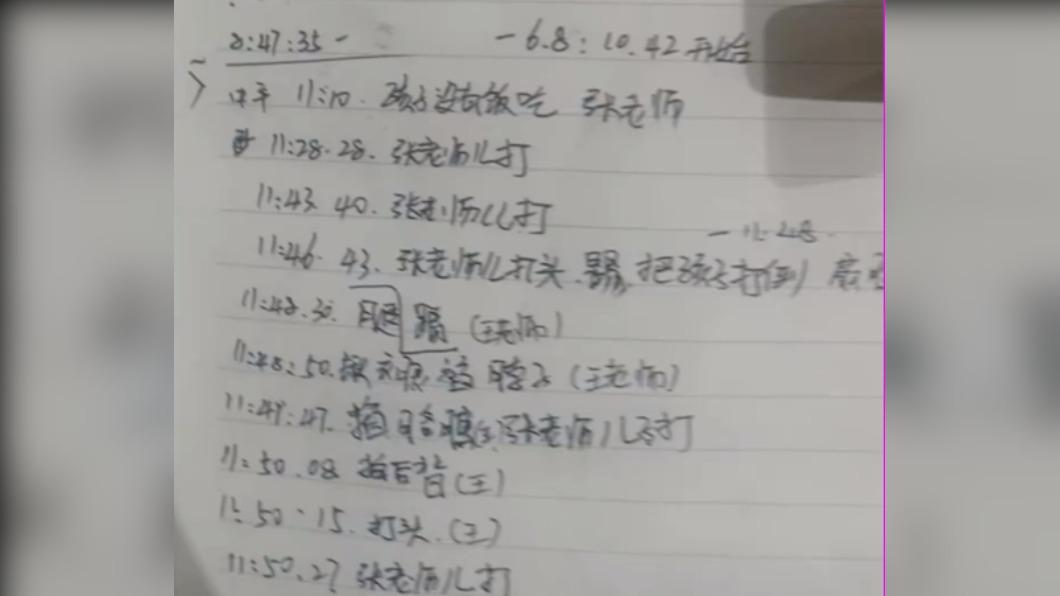 8:47:35 - - 6.8:10.42 开始
中午 11:10. 孩子没有饭吃 张老师
11:28.28. 张老师儿打
11:43 40. 张老师儿打
- 11:48.
11:46. 43. 张老师儿打头. 把孩子打(到)
11:48.30. 腿 踢 (王老师)
11:48:50. 脖子 (王老师)
11:49:47. 张老师儿子打
11:50.08 拍后背(王)
11:50.15. 打头.(王)
11:50.27 张老师儿打